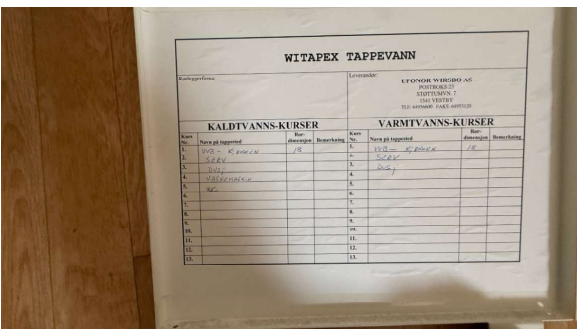 WITAPEX TAPPEVANN
Rørleggerfirma:
Leverandør:
UPONOR WIRSBO AS
POSTBOKS 23
STØTTUMVN. 7
1541 VESTBY
KALDTVANNS-KURSER
Kurs Nr. Navn på tappested Rør-dimensjon Bemerkning
1. VVB - KJØKKEN 18
2. SERV
3. DUSJ
4. VASKEMASKIN
5.
6.
7.
8.
9.
10.
11.
12.
13.
VARMTVANNS-KURSER
Kurs Nr. Navn på tappested Rør-dimensjon Bemerkning
1. VVB - KJØKKEN 18
2. SERV
3. DUSJ
4.
5.
6.
7.
8.
9.
10.
11.
12.
13.